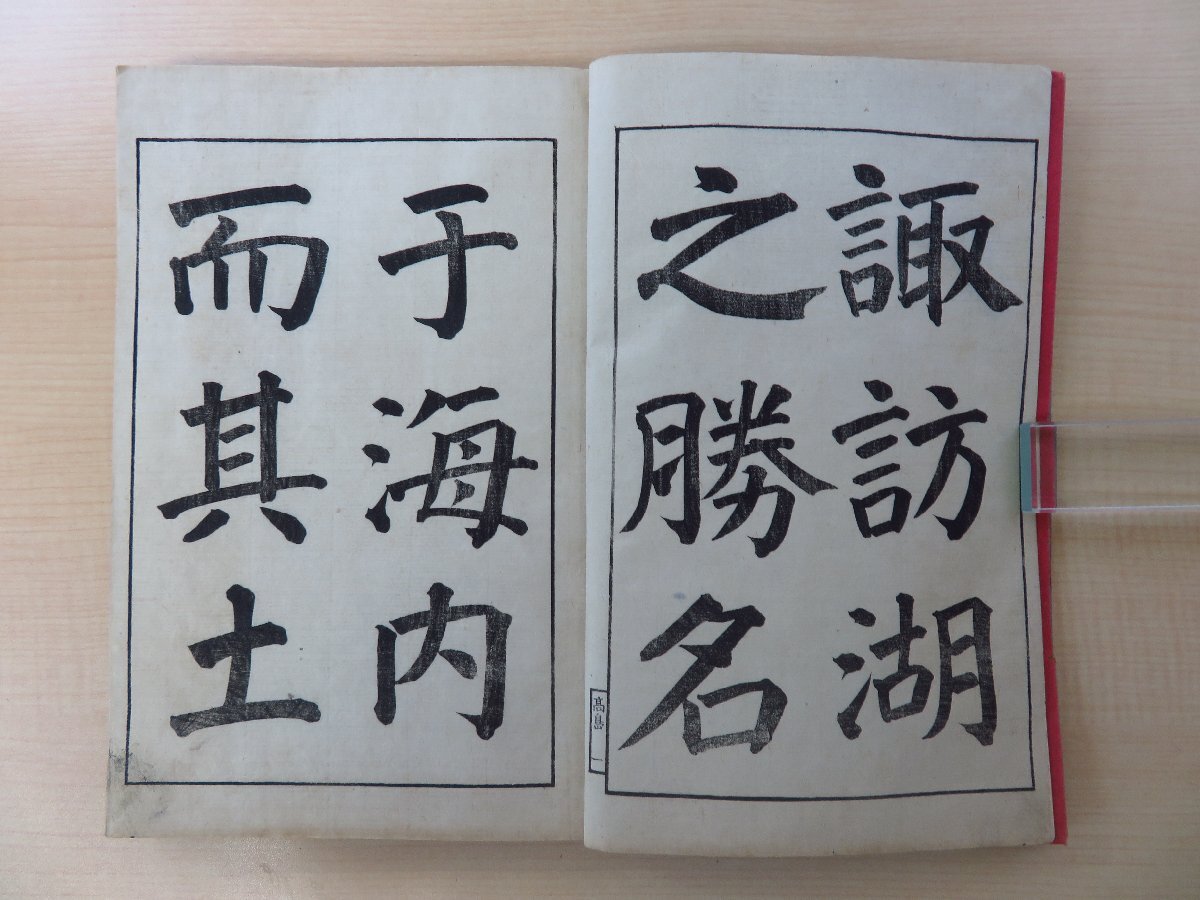 諏訪湖
之勝名
于海内
而其土
高島 一